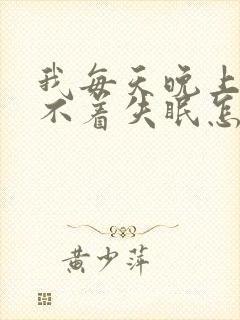 我每天晚上
不着失眠怎
黄少萍